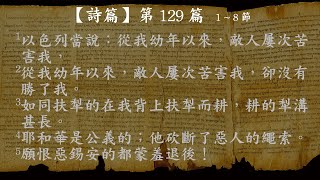 【詩篇】第 129 篇 1～8 節
1以色列當說：從我幼年以來，敵人屢次苦
害我，
2從我幼年以來，敵人屢次苦害我，卻沒有
勝了我。
3如同扶犁的在我背上扶犁而耕，耕的犁溝
甚長。
4耶和華是公義的；他砍斷了惡人的繩索。
5願恨惡錫安的都蒙羞退後！